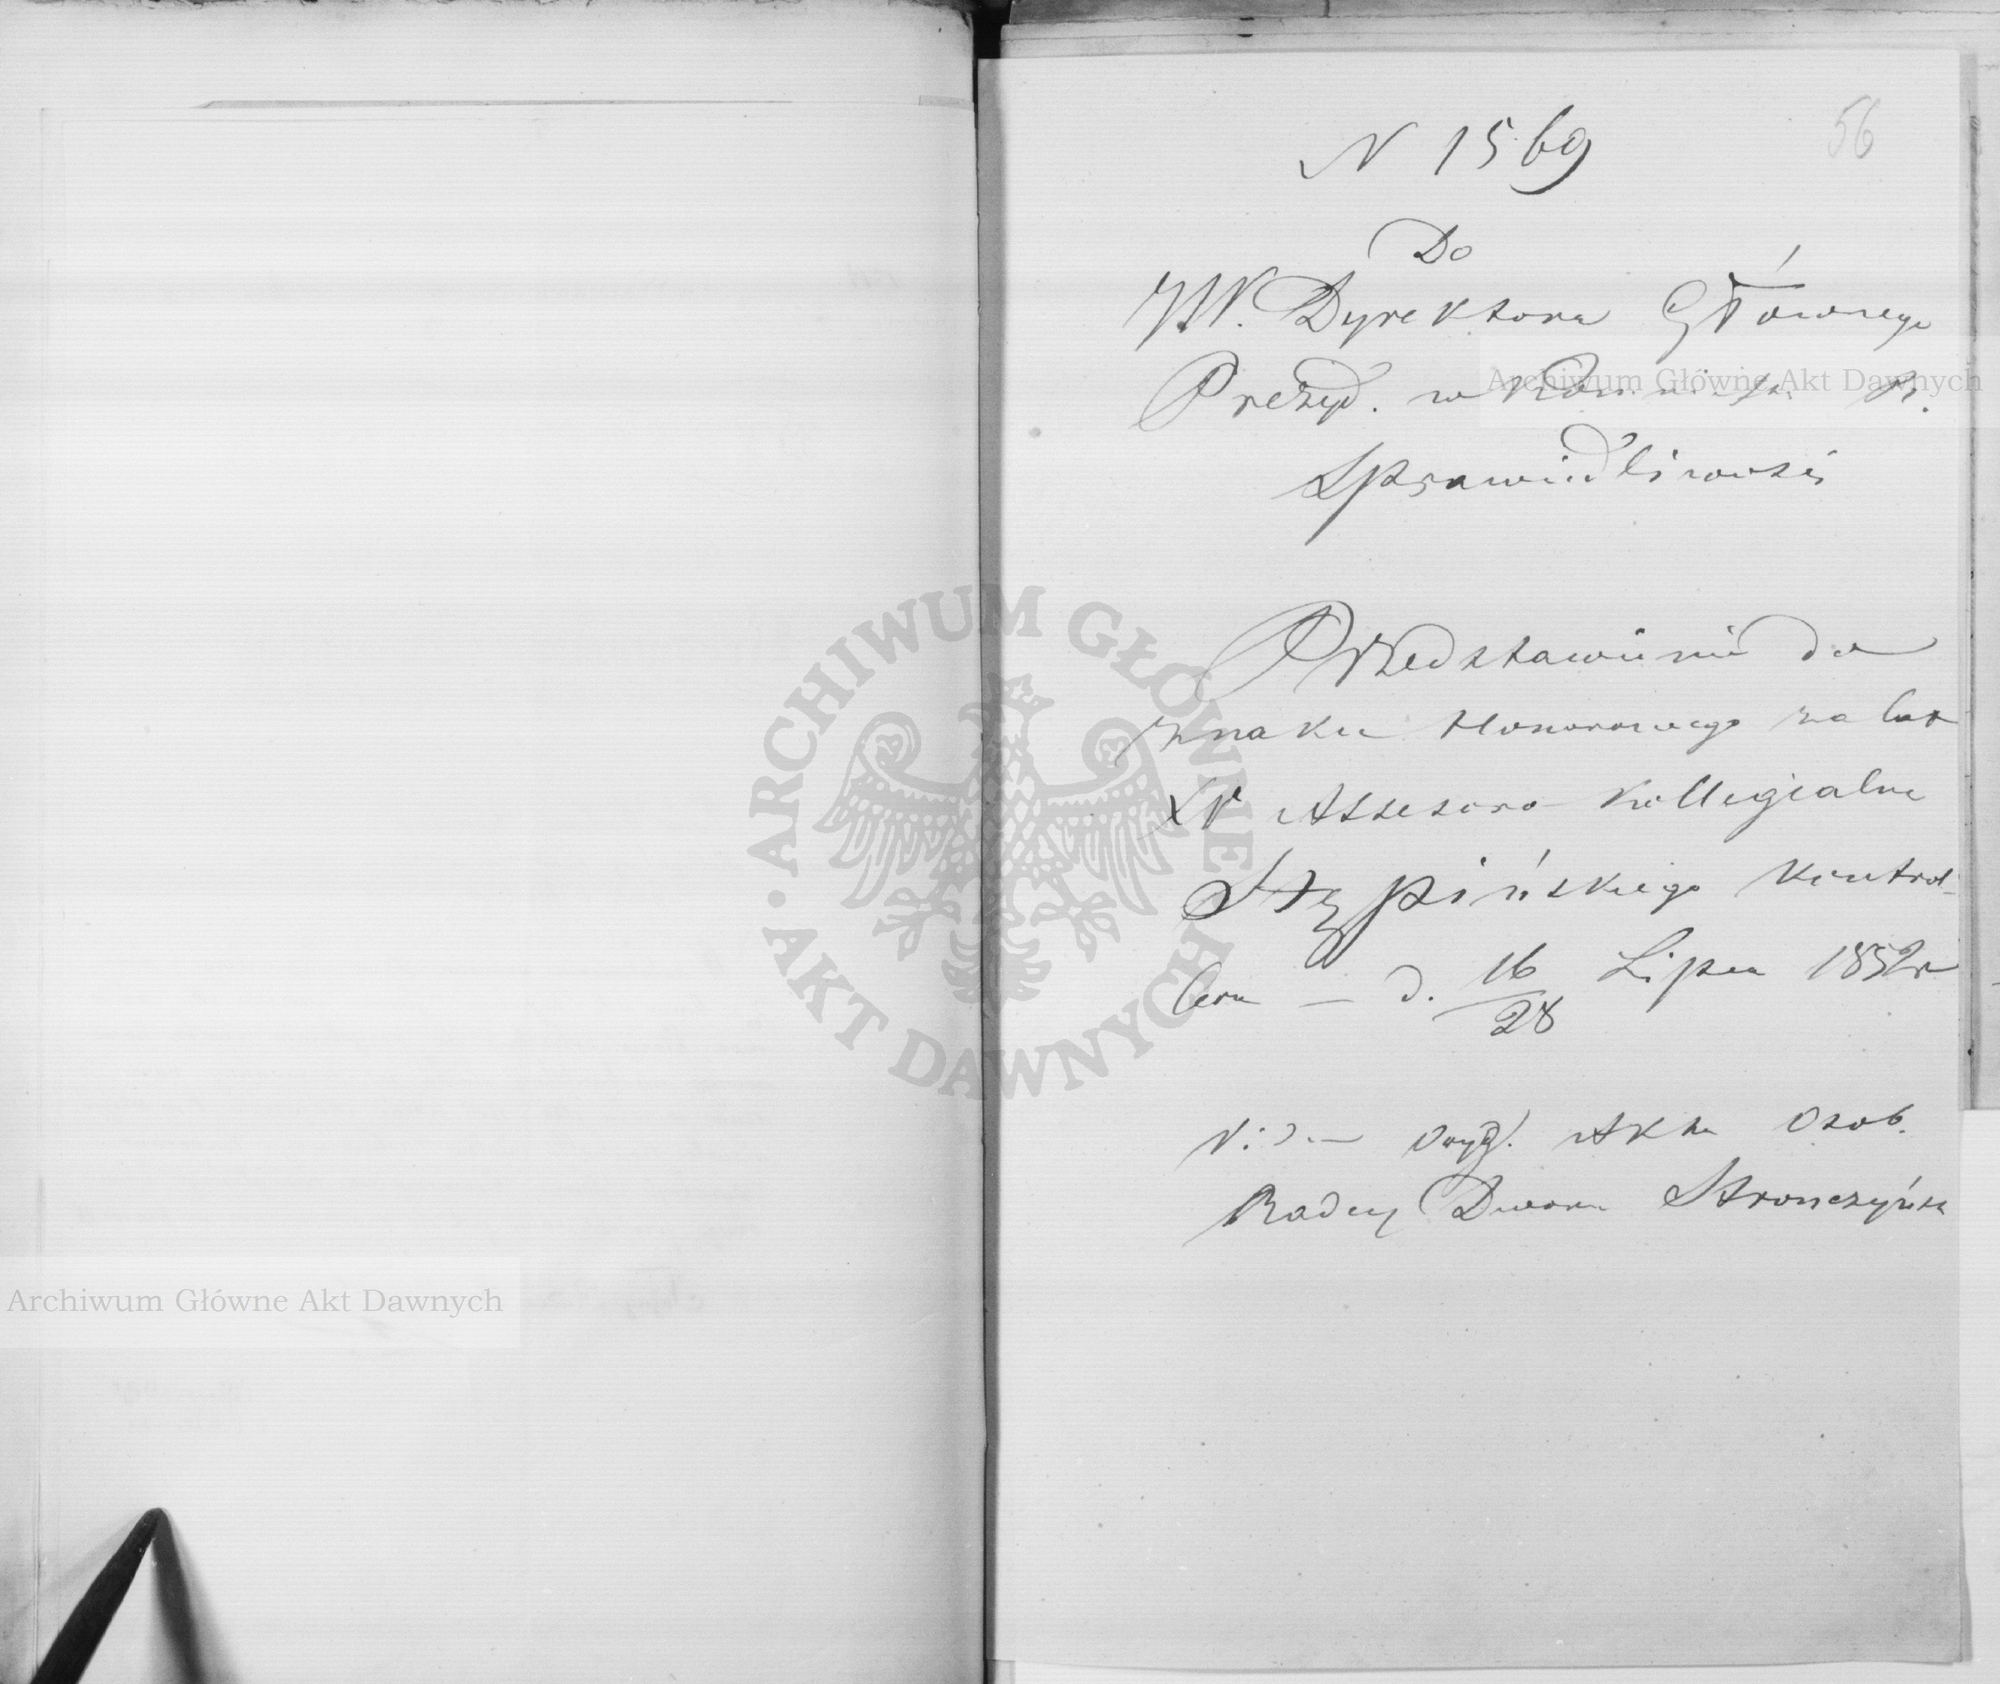 56
N 1569
Do
JW. Dyrektora Głównego
Prezyd. w Kommissyi R.
Sprawiedliwości
Przedstawienie do
znaku Honorowego za lat
XV Assesora Kollegialne
Stypińskiego Kontrol-
lera — d. 16/28 Lipca 1852 r
Vide oryg. Akta Osob.
Radcy Dworu Stronczyńsk
Archiwum Główne Akt Dawnych
ARCHIWUM GŁÓWNE · AKT DAWNYCH ·
Archiwum Główne Akt Dawnych